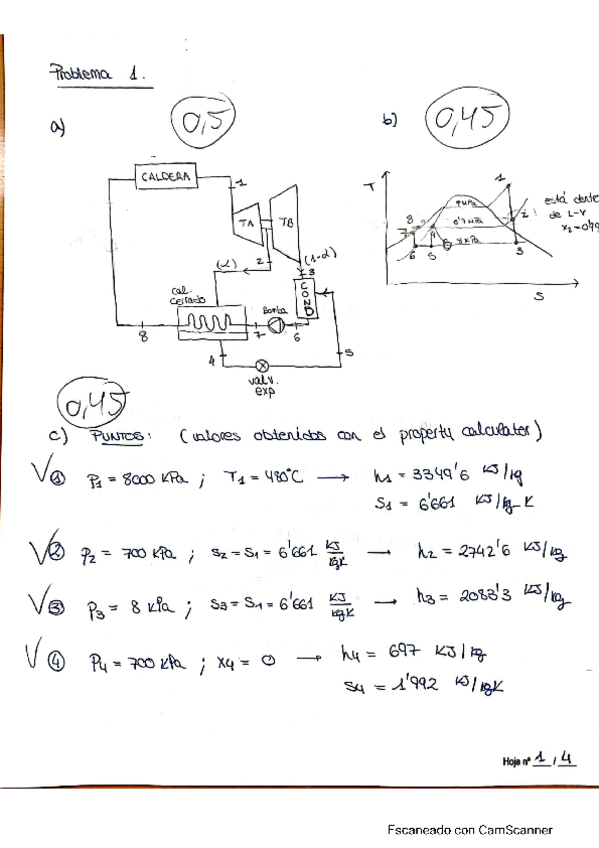 Problema 1.
a)
0,5
b)
0,45
CALDERA
1
TA
TB
2
(α)
(1-α)
3
COND
cal.
cerrado
Bomba
8
7
6
4
5
valv.
exp
T
1
8
7
4
2
6
5
3
0'7 MPa
8 kPa
está dentro
de L-V
S
0,45
c) PUNTOS: (valores obtenidos con el property calculator)
① P1 = 8000 kPa ; T1 = 480°C → h1 = 3349'6 KJ/kg
S1 = 6'661 KJ/kg K
② P2 = 700 kPa ; S2 = S1 = 6'661 KJ/kgK → h2 = 2742'6 KJ/kg
③ P3 = 8 kPa ; S3 = S1 = 6'661 KJ/kgK → h3 = 2083'3 KJ/kg
④ P4 = 700 kPa ; x4 = 0 → h4 = 697 KJ/kg
S4 = 1'992 KJ/kgK
Hoja nº 1 / 4
Escaneado con CamScanner